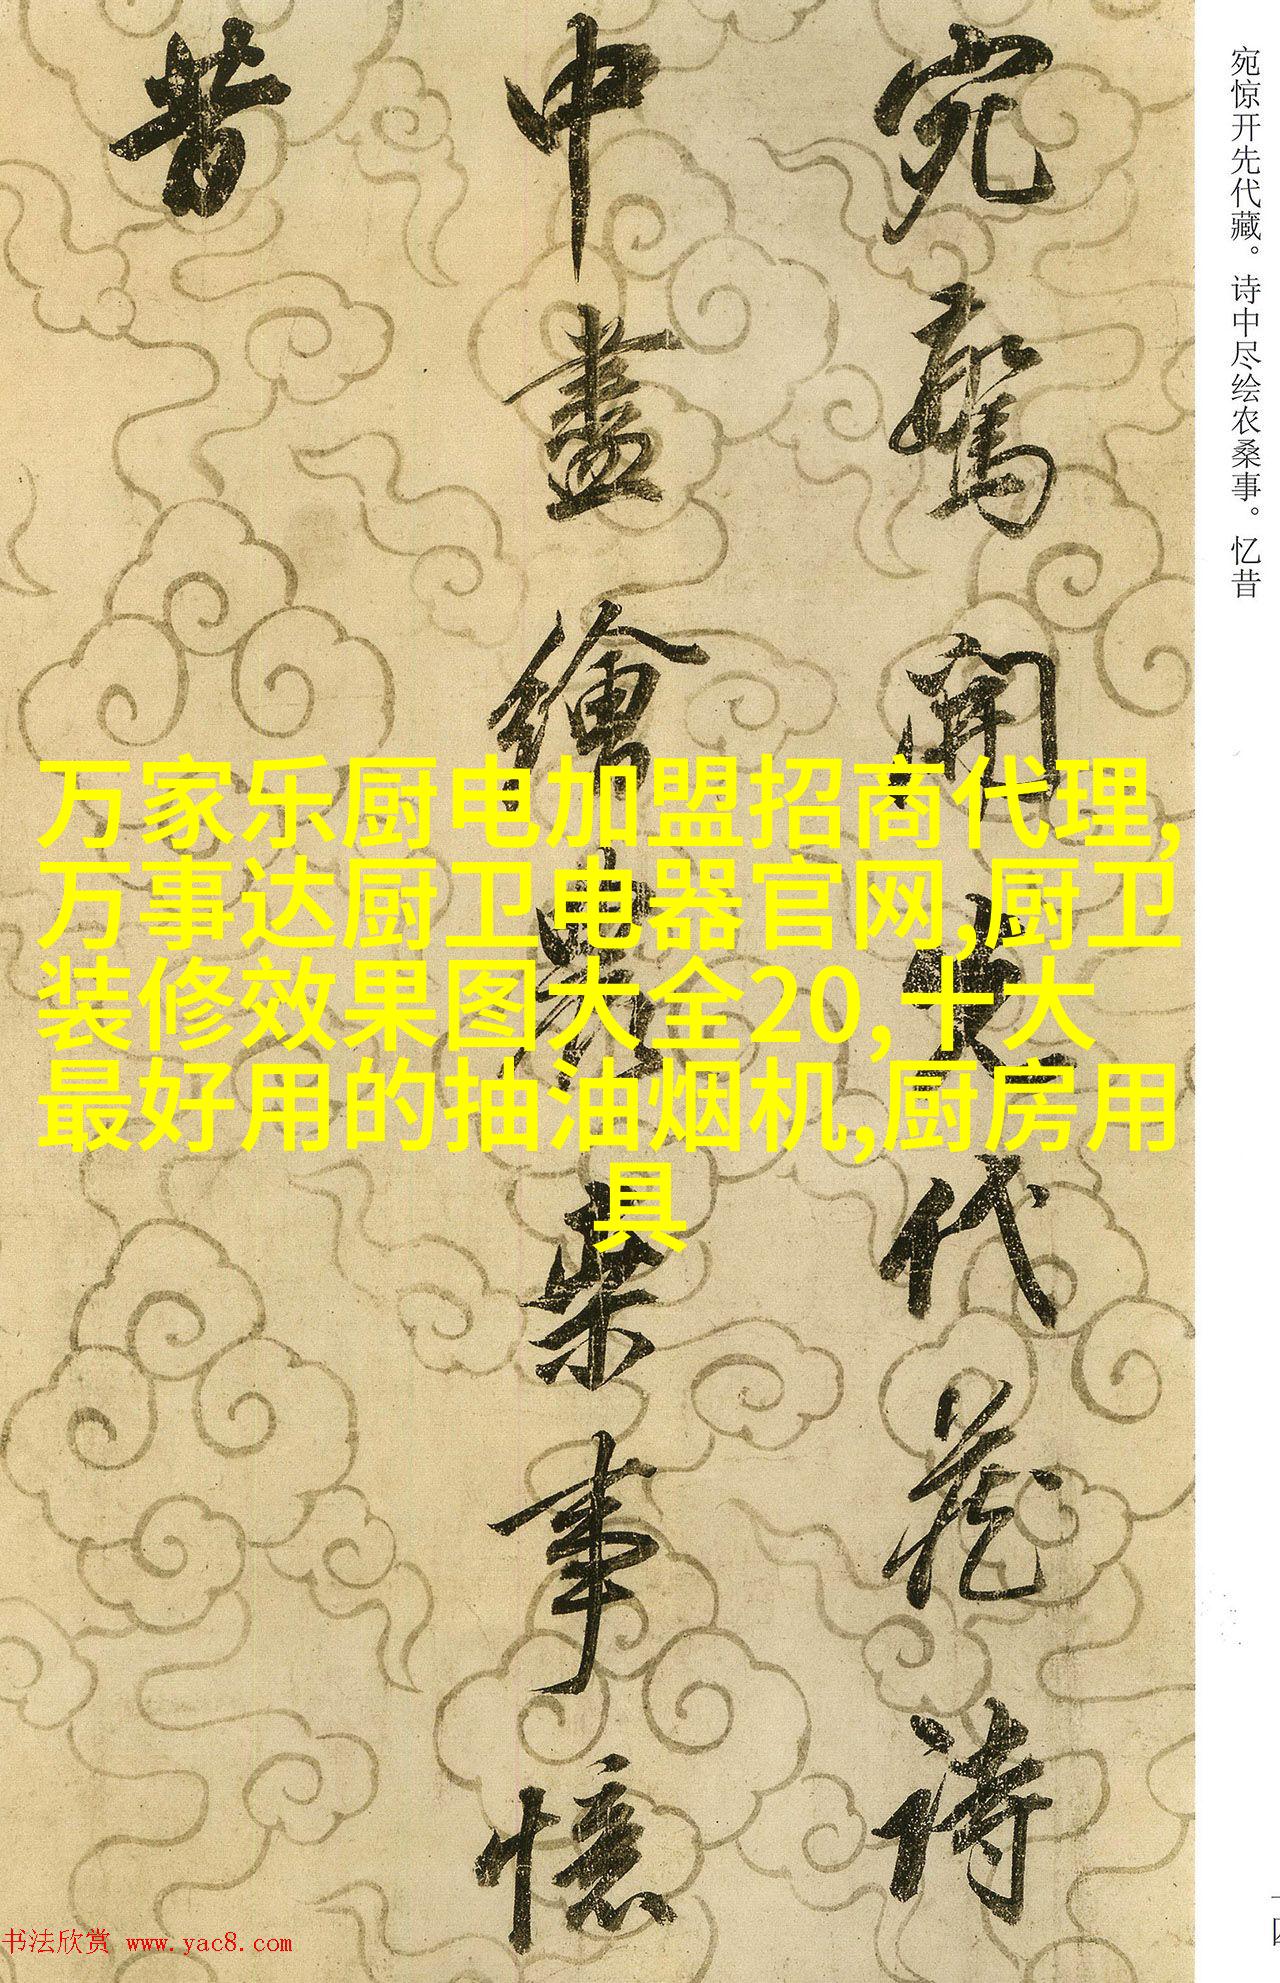 宛惊开先代藏。诗中尽绘农桑事。忆昔
宛驚開先代藏詩
中盡繪農桒事憶
昔
万家乐厨电加盟招商代理,
万事达厨卫电器官网,厨卫
装修效果图大全20,十大
最好用的抽油烟机,厨房用
具
书法欣赏 www.yac8.com